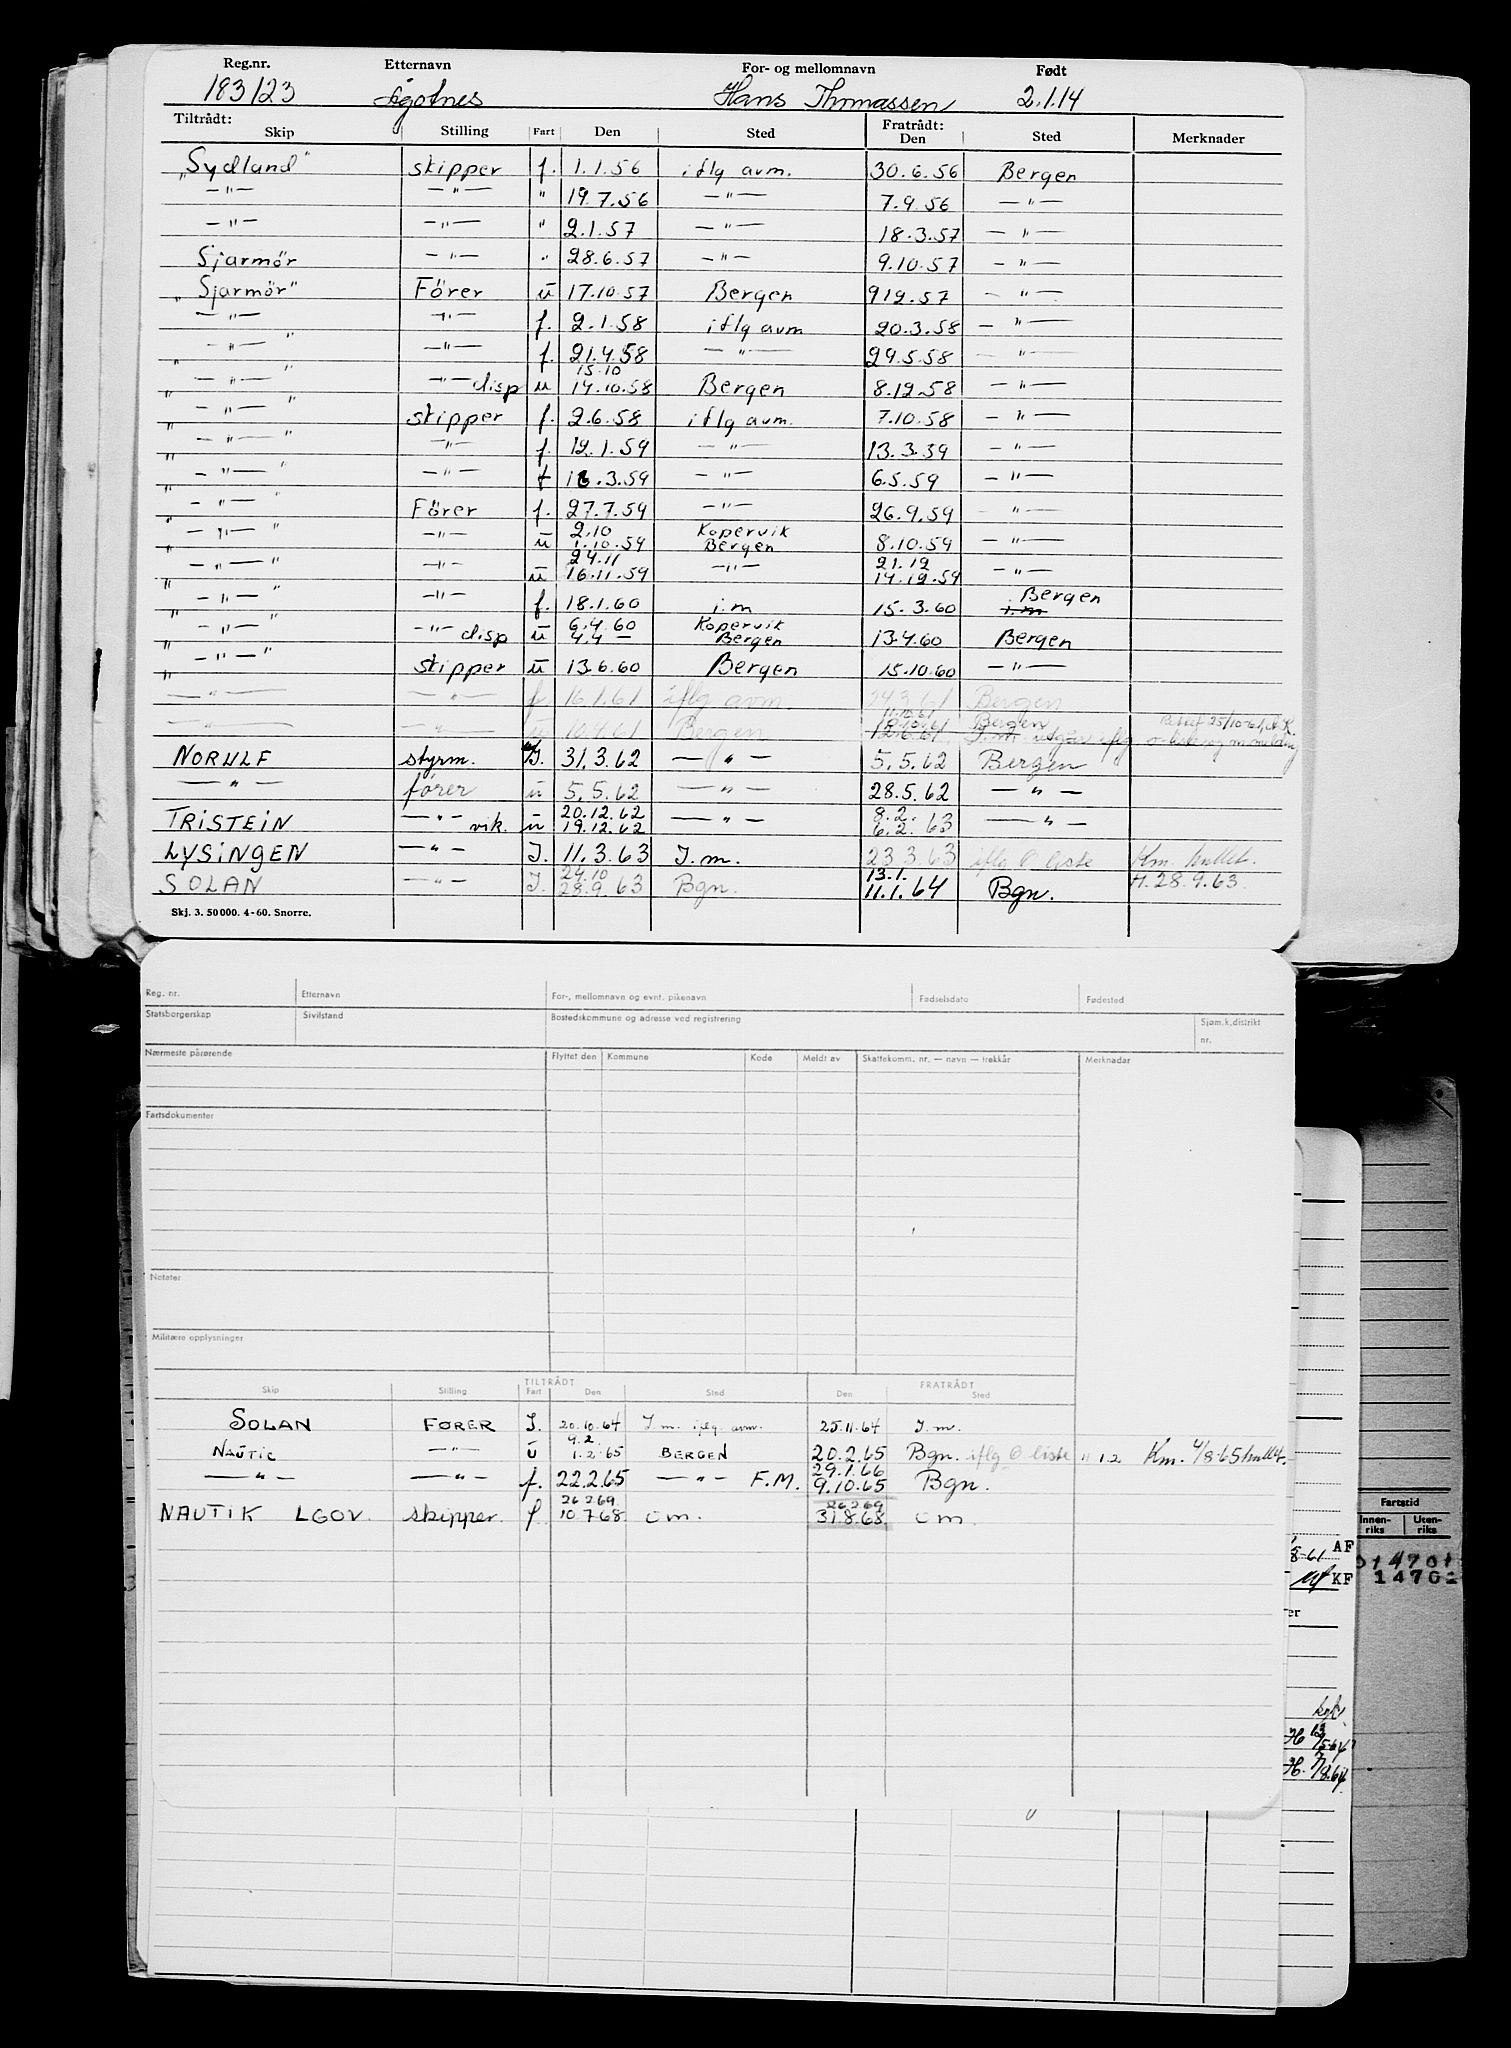 Reg.nr. Etternavn For- og mellomnavn Født
183123 Ågotnes Hans Thomassen 2.1.14
Tiltrådt: Skip Stilling Fart Den Sted Fratrådt: Den Sted Merknader
„Sydland" skipper f. 1.1.56 iflg avm. 30.6.56 Bergen
—"— —"— " 19.7.56 —"— 7.9.56 —"—
—"— —"— " 2.1.57 —"— 18.3.57 —"—
Sjarmör —"— " 28.6.57 —"— 9.10.57 —"—
„Sjarmör" Förer u 17.10.57 Bergen 912.57 —"—
—"— —"— f. 2.1.58 iflg avm 20.3.58 —"—
„—"—" —"— f. 21.4.58 —"— 29.5.58 —"—
15.10
„—"—" —"— disp u 14.10.58 Bergen 8.12.58 —"—
„—"—" skipper f. 2.6.58 iflg avm. 7.10.58 —"—
„—"—" —"— f. 12.1.59 —"— 13.3.59 —"—
„—"—" —"— f 16.3.59 —"— 6.5.59 —"—
„—"—" Förer f. 27.7.59 —"— 26.9.59 —"—
2.10 Kopervik
„—"—" —"— u 1.10.59 Bergen 8.10.59 —"—
24.11 21.12
„—"—" —"— u 16.11.59 —"— 14.12.59 —"—
Bergen
„—"—" —"— f. 18.1.60 i.m 15.3.60 i.m
6.4.60 Kopervik
„—"—" —"— disp u 4.4 — Bergen 13.4.60 Bergen
„—"—" skipper u 13.6.60 Bergen 15.10.60 —"—
—"— —"— f 16.1.61 iflg avm. 24.3.61 Bergen
11.10.61
10.10.61 Bergen Rettet 25/10-61,
—"— —"— u 10.4.61 Bergen 12.6.61 I.m. utgår iflg
NORULF styrm. I. 31.3.62 —"— 5.5.62 Bergen
—"— fører u 5.5.62 —"— 28.5.62 —"—
20.12.62 8.2.
TRISTEIN —"— vik. u 19.12.62 —"— 6.2.63 —"—
LYSINGEN —"— I. 11.3.63 I.m. 23.3.63 iflg O liste Km. hullet.
24.10 13.1.
SOLAN —"— I. 28.9.63 Bgn. 11.1.64 Bgn. H. 28.9.63.
Skj. 3. 50000. 4-60. Snorre.
Reg. nr. Etternavn For-, mellomnavn og evnt. pikenavn Fødselsdato Fødested
Statsborgerskap Sivilstand Bostedskommune og adresse ved registrering Sjøm.k.distrikt nr.
Nærmeste pårørende Flyttet den Kommune Kode Meldt av Skattekomm. nr. — navn — trekkår Merknader
Fartsdokumenter
Notater
Militære opplysninger
TILTRÅDT FRATRÅDT
Skip Stilling Fart Den Sted Den Sted
SOLAN FØRER I. 20.10.64 I.m. iflg. avm. 25.11.64 I.m.
9.2.
NAUTIC —"— u 1.2.65 BERGEN 20.2.65 Bgn. iflg O liste 11 1.2 Km. 4/8.65 hullet.
29.1.66
—"— —"— f. 22.2.65 —"— F.M. 9.10.65 Bgn.
26269 26269
NAUTIK LGOV. skipper. f. 10768 om. 31.8.68 om
Fartstid
Innen-riks Uten-riks
8-61 AF
KF
01470
1470
er
H 12/5-64
H. 7/8.64